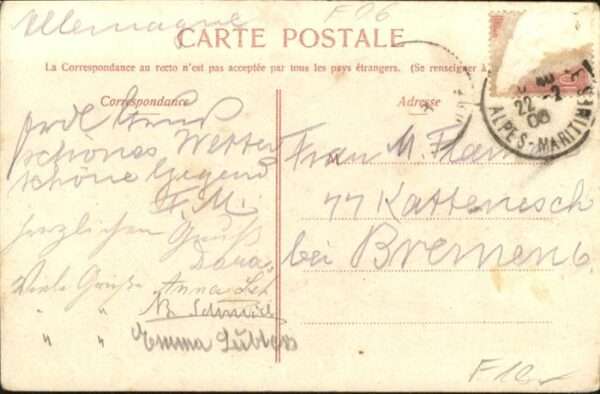 Allemagne
F 06
CARTE POSTALE
La Correspondance au recto n'est pas acceptée par tous les pays étrangers. (Se renseigner à
Correspondance
Adresse
22 -2
06
ALPES-MARITIMES
Gruß
schönes Wetter
schöne Gegend
F. M.
herzlichen Gruß
Dora
Viele Grüße Anna
" " Schmidt
" " Emma Lübbers
Frau M.
77 Kattenesch
bei Bremen